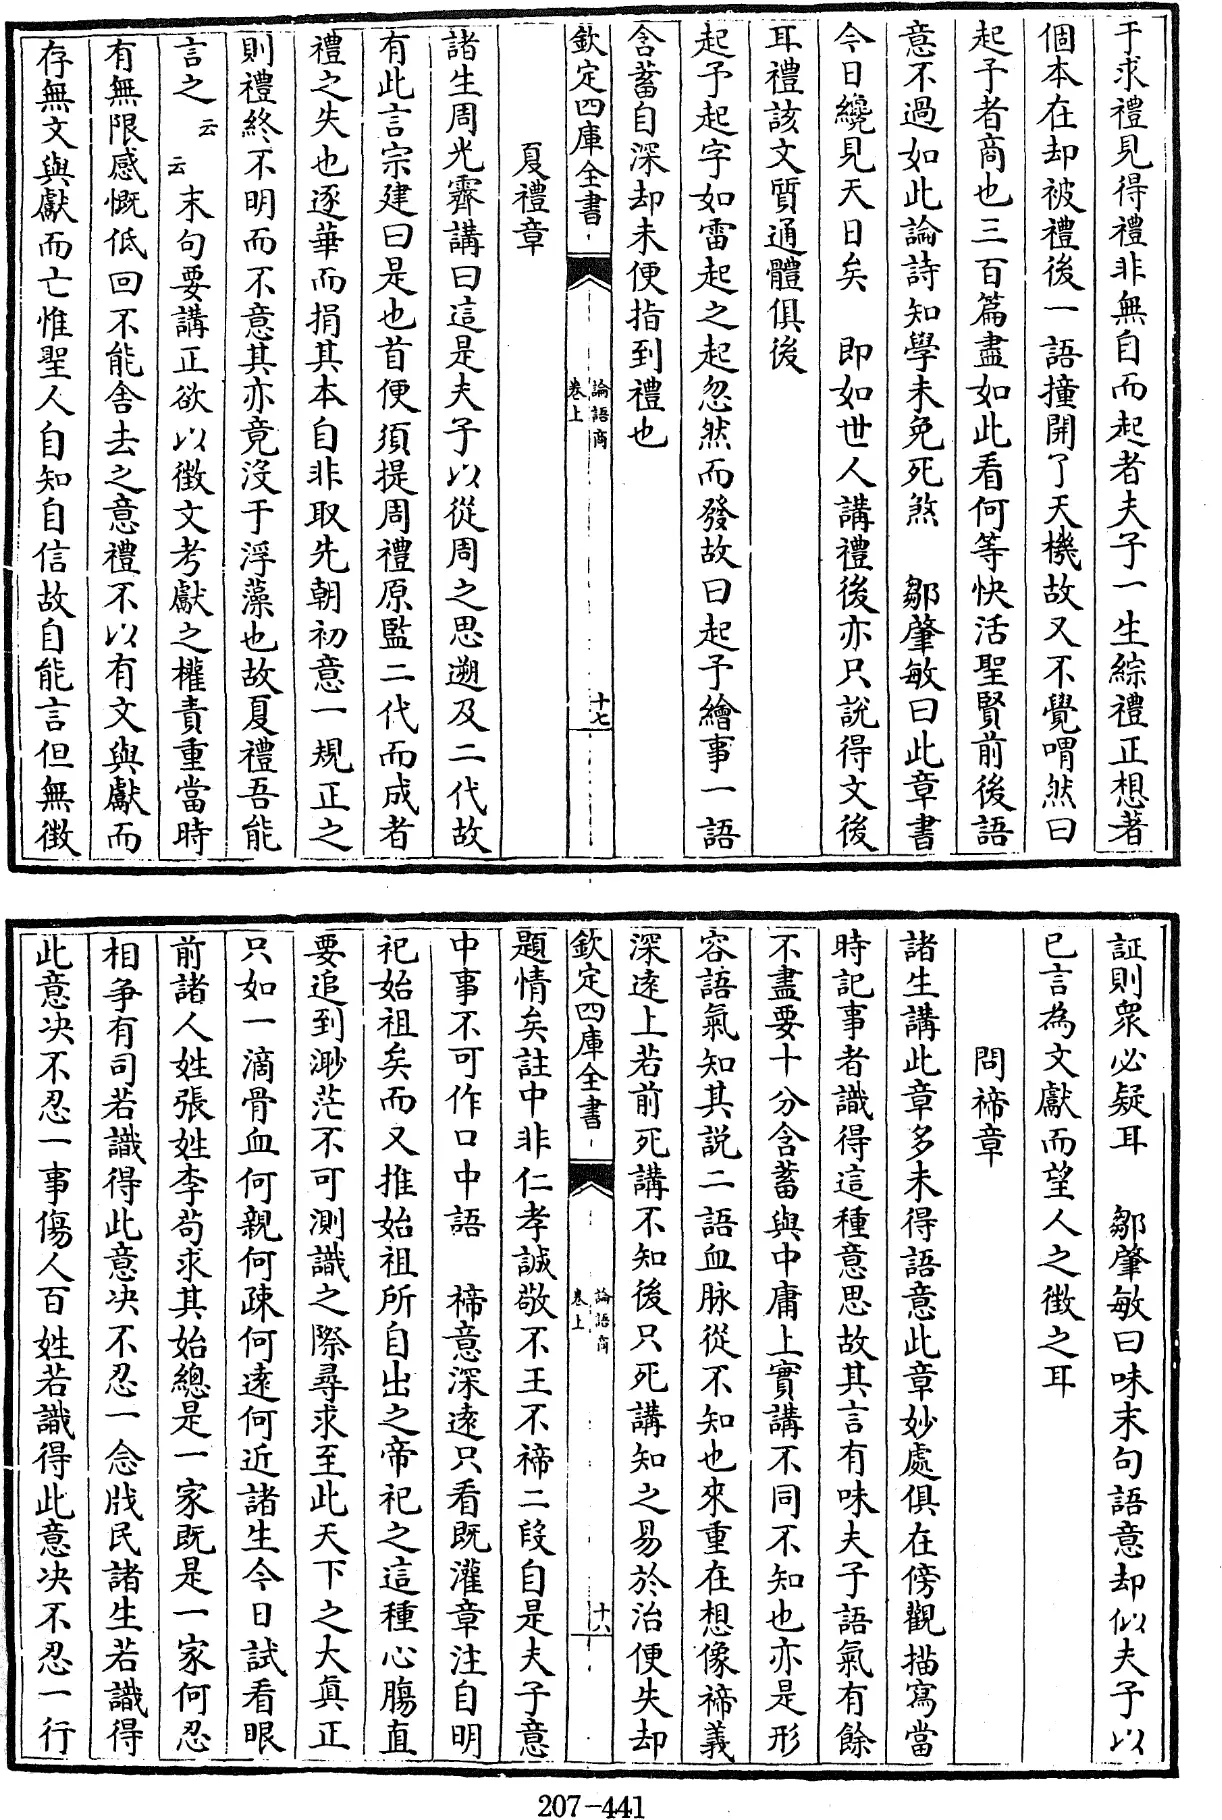 于求禮見得禮非無自而起者夫子一生綜禮正想著
個本在却被禮後一語撞開了天機故又不覺喟然曰
起予者商也三百篇盡如此看何等快活聖賢前後語
意不過如此論詩知學未免死煞　鄒肇敏曰此章書
今日纔見天日矣　即如世人講禮後亦只說得文後
耳禮該文質通體俱後
起予起字如雷起之起忽然而發故曰起予繪事一語
含蓄自深却未便指到禮也
欽定四庫全書
論語商
卷上
十七
夏禮章
諸生周光霽講曰這是夫子以從周之思遡及二代故
有此言宗建曰是也首便須提周禮原監二代而成者
禮之失也逐華而捐其本自非取先朝初意一規正之
則禮終不明而不意其亦竟沒于浮藻也故夏禮吾能
言之云云末句要講正欲以徵文考獻之權責重當時
有無限感慨低回不能舍去之意禮不以有文與獻而
存無文與獻而亡惟聖人自知自信故自能言但無徵
証則衆必疑耳　鄒肇敏曰味末句語意却似夫子以
已言為文獻而望人之徵之耳
問禘章
諸生講此章多未得語意此章妙處俱在傍觀描寫當
時記事者識得這種意思故其言有味夫子語氣有餘
不盡要十分含蓄與中庸上實講不同不知也亦是形
容語氣知其說二語血脉從不知也來重在想像禘義
深遠上若前死講不知後只死講知之易於治便失却
欽定四庫全書
論語商
卷上
十八
題情矣註中非仁孝誠敬不王不禘二段自是夫子意
中事不可作口中語　禘意深遠只看既灌章注自明
祀始祖矣而又推始祖所自出之帝祀之這種心腸直
要追到渺茫不可測識之際尋求至此天下之大真正
只如一滴骨血何親何疎何遠何近諸生今日試看眼
前諸人姓張姓李苟求其始總是一家既是一家何忍
相争有司若識得此意决不忍一念戕民諸生若識得
此意决不忍一事傷人百姓若識得此意决不忍一行
207-441